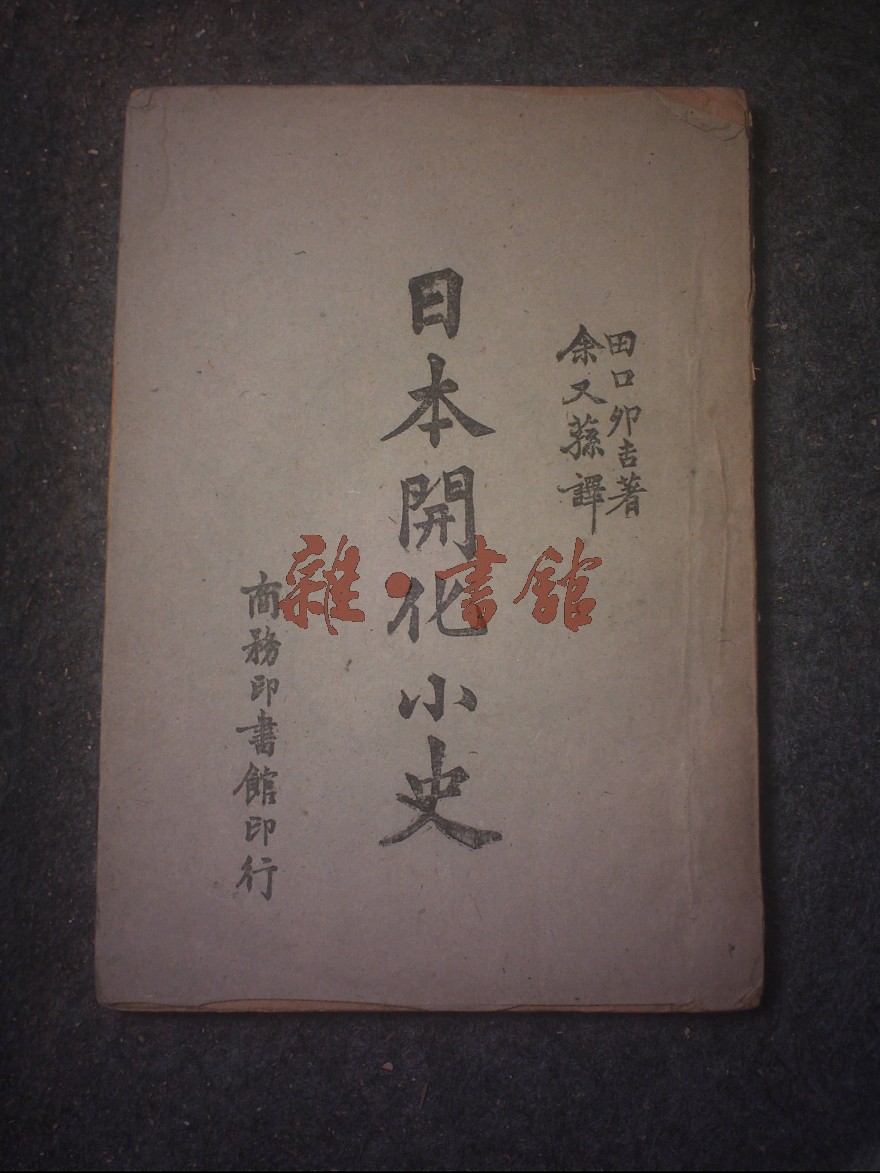 田口卯吉著
余又蓀譯
日本開化小史
商務印書館印行
雜·書館